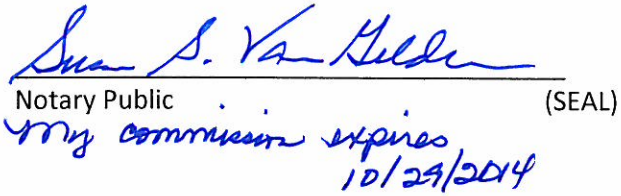 Susan S. Van Gelder
Notary Public (SEAL)
My commission expires
10/29/2014